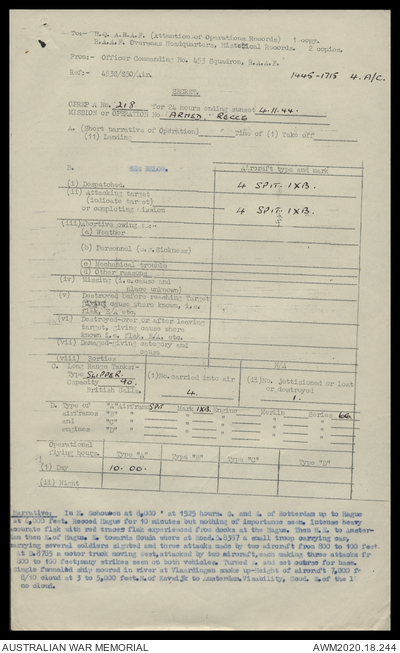 To:- H.Q. A.E.A.F. (Attention of Operations Records) 1 copy.
R.A.A.F. Overseas Headquarters, Historical Records. 2 copies.
From:- Officer Commanding No. 453 Squadron, R.A.A.F.
Ref:- 453S/250/Air. 1445-1715 4. A/C.
SECRET.
OPREP A No. 218 for 24 hours ending sunset 4.11.44.
MISSION or OPERATION No. ARMED. RECCE
A. (Short narrative of Operation) Time of (1) Take off
(11) Landing
B. Aircraft type and mark
(i) Despatched. 4 SPIT. IXB.
(ii) Attacking target
(indicate target)
or completing mission 4 SPIT. IXB.
(iii) Abortive owing to:-
(a) Weather
(b) Personnel (e.g. Sickness)
(c) Mechanical trouble
(d) Other reasons
(iv) Missing (i.e. cause and
place unknown)
(v) Destroyed before reaching Target
giving cause where known, i.e.
flak, E/A etc.
(vi) Destroyed-over or after leaving
target, giving cause where
known i.e. flak, E/A. etc.
(vii) Damaged-giving category and
cause
(viii) Sorties
C. Long Range Tanks:- N/A
Type SLIPPER. (1) No. carried into air (ii) No. jettisoned or lost
Capacity 90. or destroyed
British Galls. 4. 1.
D. Type of "A" Airframe SPIT Mark IXB Engine Merlin Series 66
airframes "B" " " " " "
and "C" " " " " "
engines "D" " " " " "
Operational
flying hours. Type "A" Type "B" Type "C" Type "D"
(i) Day 10.00.
(ii) Night
Narrative: In N. Schouwen at 8,000' at 1525 hours. E. and N. of Rotterdam up to Hague
at 8,000 feet. Recced Hague for 10 minutes but nothing of importance seen. Intense heavy
accurate flak with red tracer flak experienced from docks at the Hague. Then N.E. to Amster-
dam then S. of Hague. E. towards Gouda where at Road. D.8387 a small troop carrying car,
carrying several soldiers sighted and three attacks made by two aircraft from 800 to 100 feet.
at D.8785 a motor truck moving West, attacked by two aircraft, each making three attacks fr
800 to 100 feet; many strikes seen on both vehicles. Turned S. and set course for base.
Single funneled ship moored in river at Vlaardingen smoke up-Height of aircraft 7,000 f
8/10 cloud at 3 to 5,000 feet. N. of Katwijk to Amsterdam. Visability, Good. S. of the l
no cloud.
AUSTRALIAN WAR MEMORIAL AWM2020.18.244